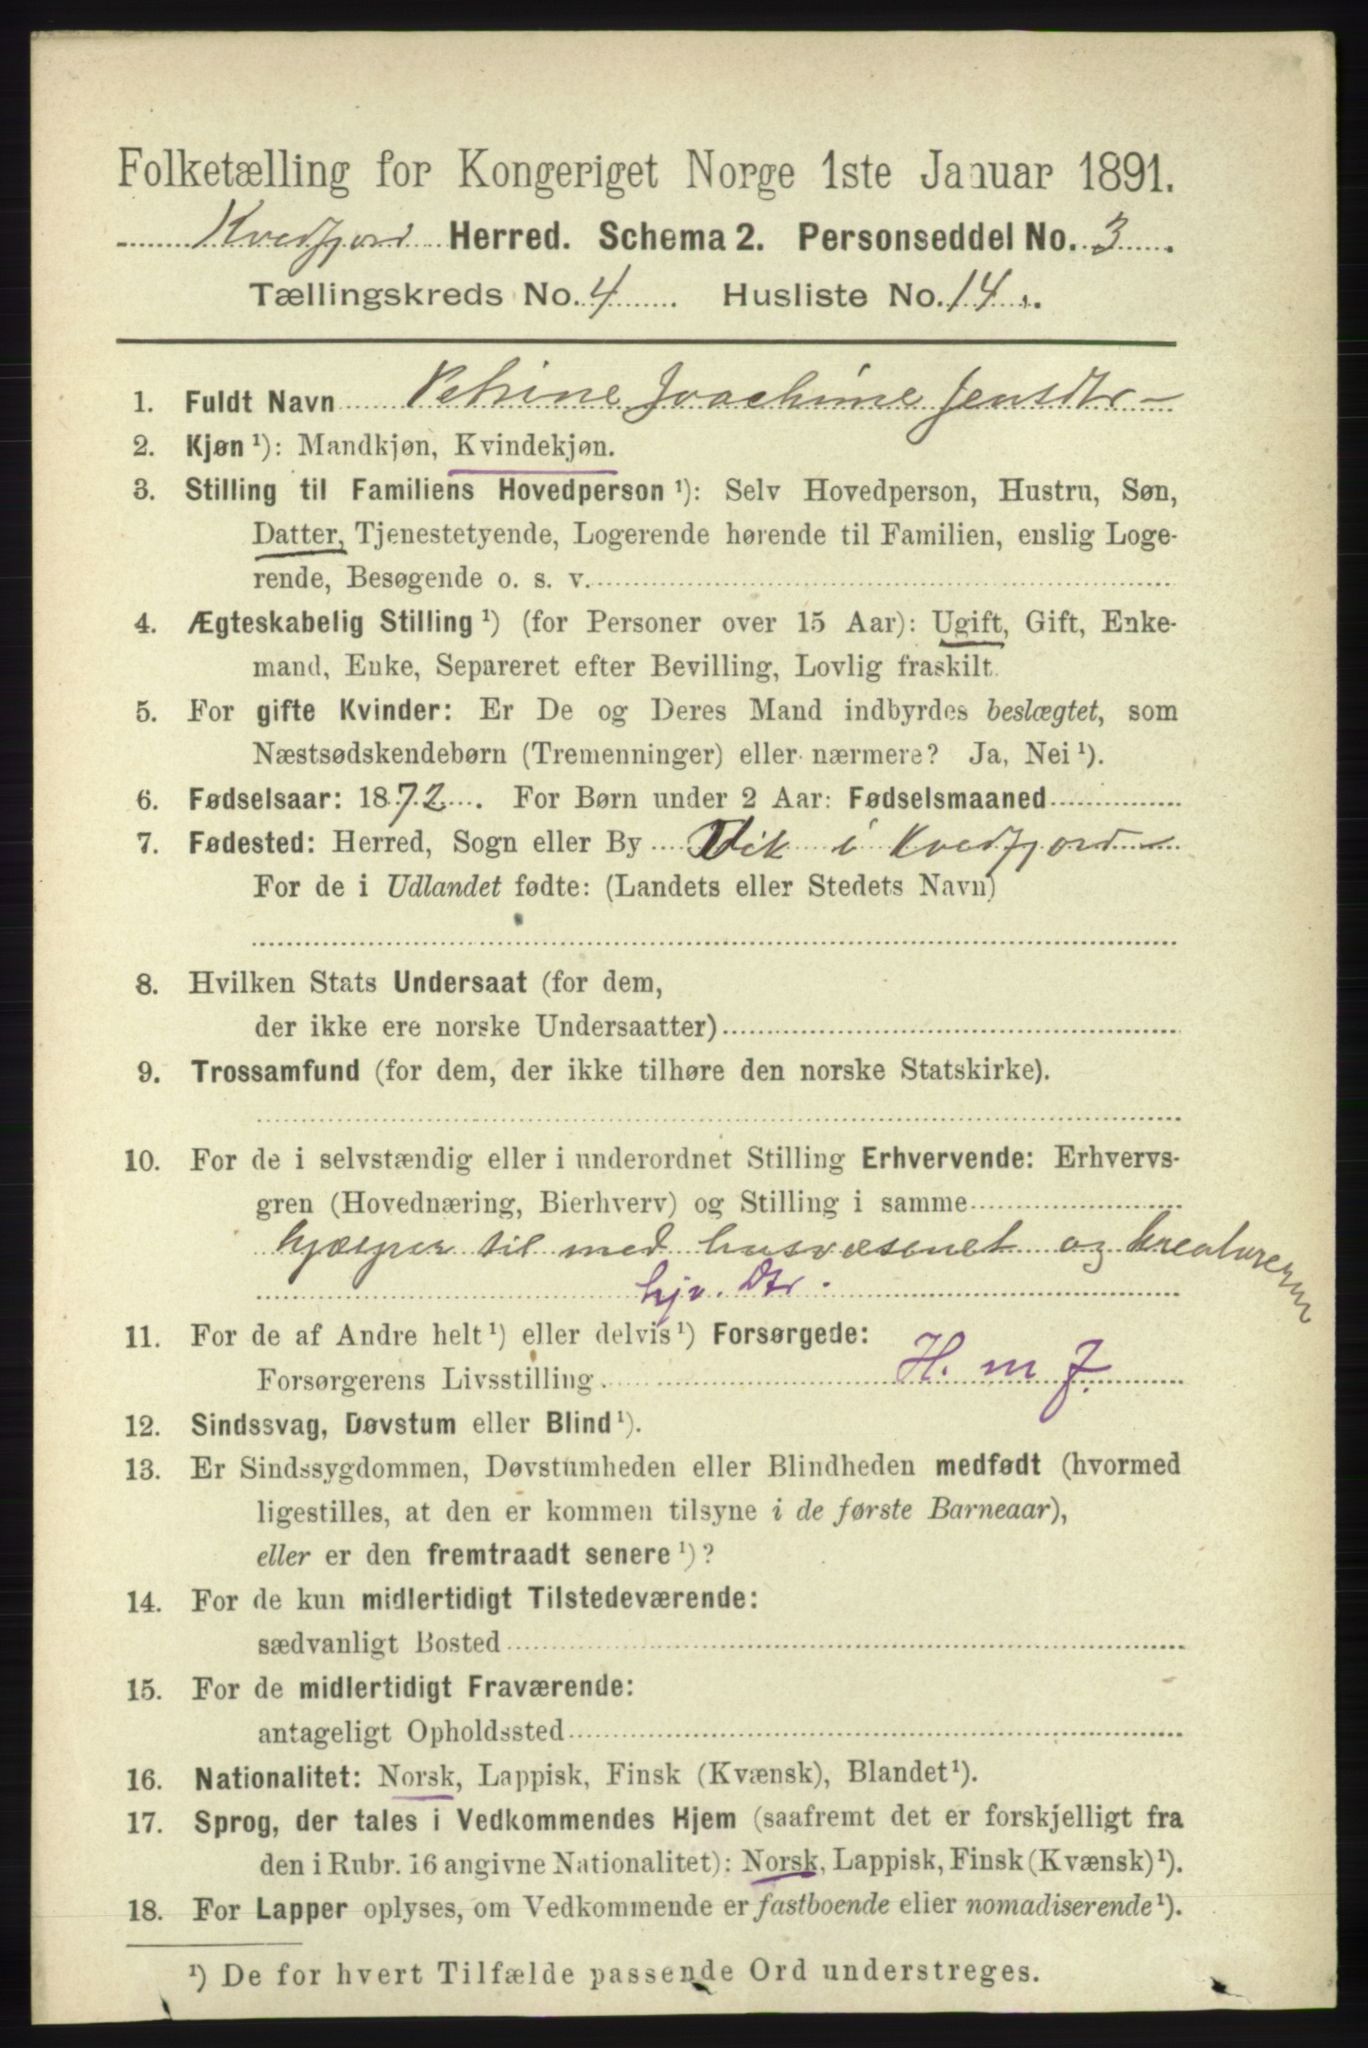 Folketælling for Kongeriget Norge 1ste Januar 1891.
Kvedfjord Herred. Schema 2. Personseddel No. 3.
Tællingskreds No. 4 Husliste No. 14.
1. Fuldt Navn Petrine Joachime Jensdtr
2. Kjøn ¹): Mandkjøn, Kvindekjøn.
3. Stilling til Familiens Hovedperson ¹): Selv Hovedperson, Hustru, Søn,
Datter, Tjenestetyende, Logerende hørende til Familien, enslig Loge-
rende, Besøgende o. s. v.
4. Ægteskabelig Stilling ¹) (for Personer over 15 Aar): Ugift, Gift, Enke-
mand, Enke, Separeret efter Bevilling, Lovlig fraskilt.
5. For gifte Kvinder: Er De og Deres Mand indbyrdes beslægtet, som
Næstsødskendebørn (Tremenninger) eller nærmere? Ja, Nei ¹).
6. Fødselsaar: 1872. For Børn under 2 Aar: Fødselsmaaned
7. Fødested: Herred, Sogn eller By Vik i Kvedfjord
For de i Udlandet fødte: (Landets eller Stedets Navn)
8. Hvilken Stats Undersaat (for dem,
der ikke ere norske Undersaatter)
9. Trossamfund (for dem, der ikke tilhøre den norske Statskirke).
10. For de i selvstændig eller i underordnet Stilling Erhvervende: Erhvervs-
gren (Hovednæring, Bierhverv) og Stilling i samme
hjælper til med husvæsenet og kreaturerne
hjv. Dtr.
11. For de af Andre helt ¹) eller delvis ¹) Forsørgede:
Forsørgerens Livsstilling H. m J.
12. Sindssvag, Døvstum eller Blind ¹).
13. Er Sindssygdommen, Døvstumheden eller Blindheden medfødt (hvormed
ligestilles, at den er kommen tilsyne i de første Barneaar),
eller er den fremtraadt senere ¹)?
14. For de kun midlertidigt Tilstedeværende:
sædvanligt Bosted
15. For de midlertidigt Fraværende:
antageligt Opholdssted
16. Nationalitet: Norsk, Lappisk, Finsk (Kvænsk), Blandet ¹).
17. Sprog, der tales i Vedkommendes Hjem (saafremt det er forskjelligt fra
den i Rubr. 16 angivne Nationalitet): Norsk, Lappisk, Finsk (Kvænsk) ¹).
18. For Lapper oplyses, om Vedkommende er fastboende eller nomadiserende ¹).
¹) De for hvert Tilfælde passende Ord understreges.